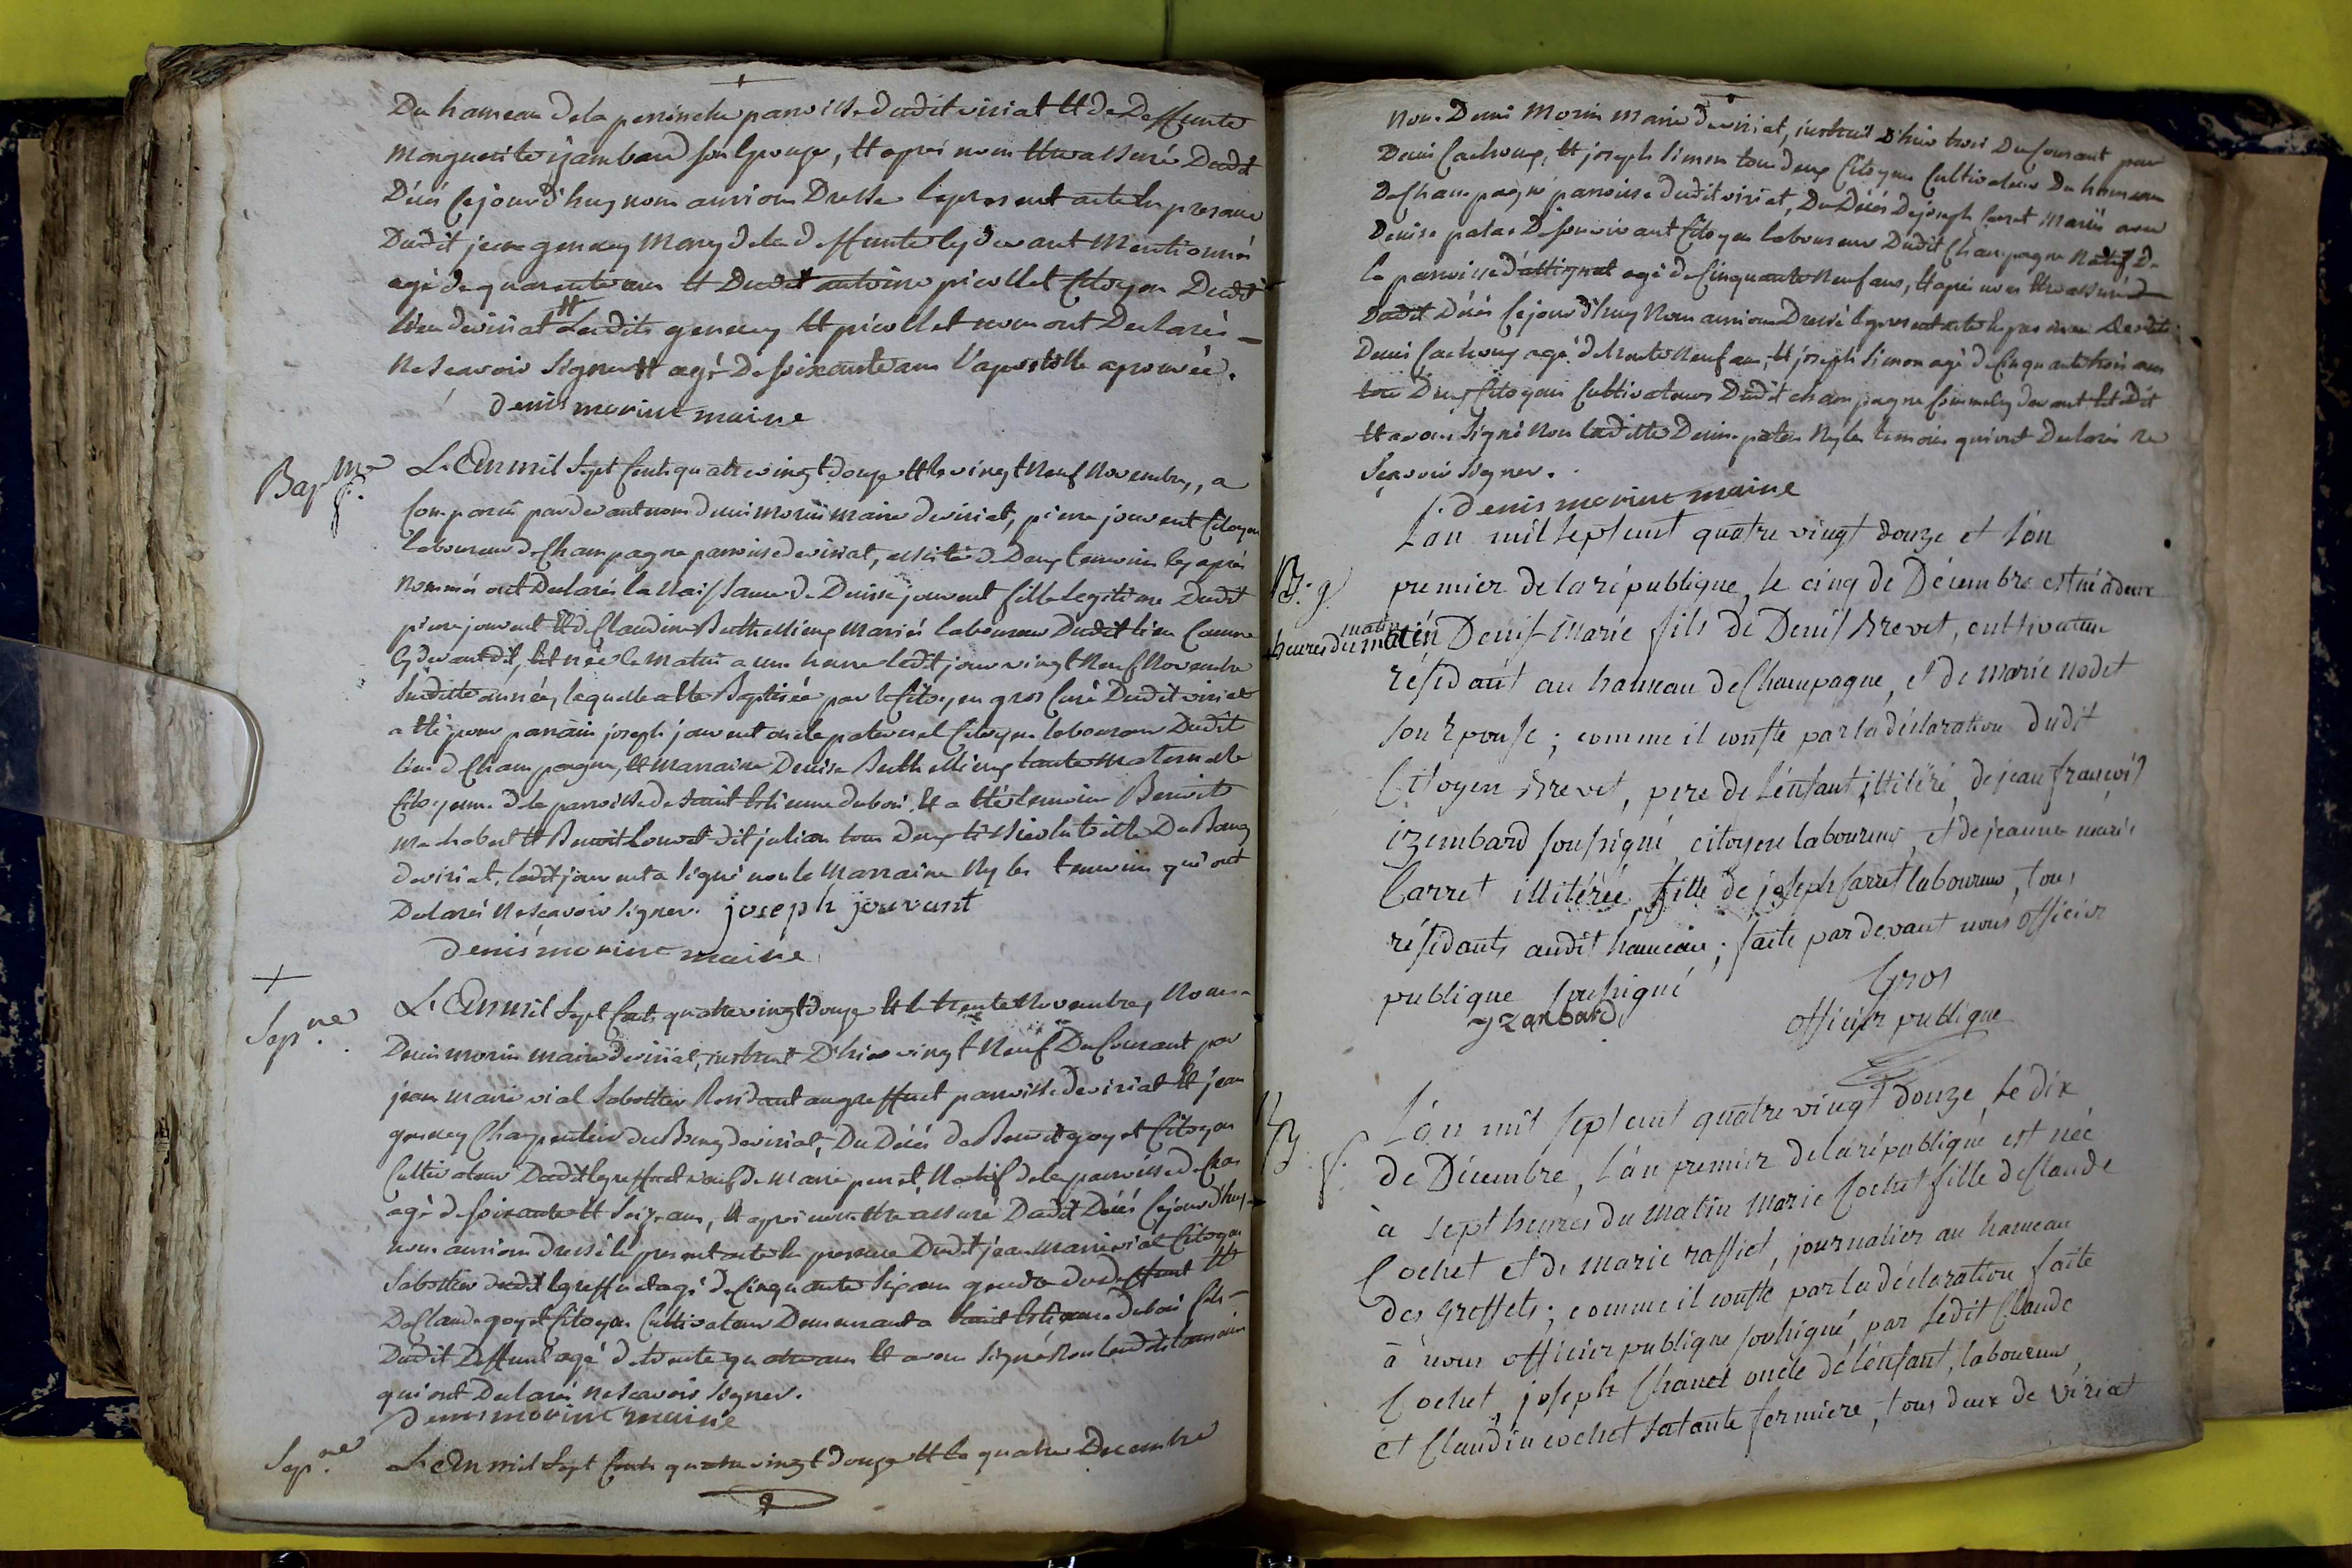 Du hameau de la perrinche parroisse dudit viriat Et de Deffunte
Marguerite yzambard son Epouze, Et après nous Etre assuré Dudit
Décés Cejourd'huy nous aurions Dressé le present acte En presence
Dudit jean gensey Mary de la deffunte Cy devant Mentionné
agé de quarente ans Et Dudit antoine picollet Citoyen Dudit
lieu de viriat Et Lesdits gensey Et picollet nous ont Declarés
Ne scavoir signer Et agé De soixante ans l'apostille aprouvée.
denis morine maire
Bapme
f.
L'An mil sept Cents quatre vingt Douze Et le vingt Neuf Novembre, a
Comparû par devant nous denis morin maire de viriat, pierre jouvent Citoyen
laboureur de Champagne parroisse de viriat, assisté de Deux temoins Cy après
Nommés ont Declarés la Naissance de Denise jouvent fille legitime Dudit
pierre jouvent Et de Claudine Buthelliens Mariés laboureur Dudit lieu Comme
Cy devant dit, Est née le Matin a une heure ledit jour vingt Neuf Novembre
Susditte année, laquelle a Ete Baptisée par le Citoyen gros Curé Dudit viriat
a Eté pour parrain joseph jouvent oncle paternel Citoyen laboureur Dudit
lieu de Champagne, Et Marraine Denise Buthelliens tante Maternelle
Citoyenne de la parroisse de saint Estienne dubois. Et a Eté temoins Benoit
Machobert Et Benoit Louvet dit julian tous deux Du Bourg
de viriat, ledit jouvent a signé non la Marraine Ny les temoins qui ont
Declarés Ne scavoir signer. joseph jouvent
denis morine maire
+
Sepne
L'An mil Sept Cents quatre vingt Douze Et le trente Novembre, Nous
Denis morin maire de viriat, instruit D'hier vingt Neuf Du Courant par
jean marie vial Sabottier Residant au greffiet parroisse de viriat Et jean
gensey Charpentier du Bourg de viriat, Du Décés de Benoit goyet Citoyen
Cultivateur Dudit greffiet veuf de Marie perret, Natif de la parroisse de Cras
agé de soixante Et Seize ans, Et après nous Etre assuré Dudit Décés Cejourd'huy
nous aurions dressé le present acte En presence Dudit jean Marie vial Citoyen
Sabottier dudit greffiet agé de Cinquante Six ans gendre du deffunt Et
De Claude goyet Citoyen Cultivateur Demeurant a Saint Estienne dubois fils
Dudit Deffunt agé de trente quatre ans Et avons signé Non lesdits temoins
qui ont Declarés Ne scavoir signer.
denis morine maire
Sepne
L'An mil Sept Cents quatre vingt Douze Et le quatre Decembre
Nous Denis Morin Maire de viriat, instruit D'hier trois Du Courant par
Denis Cachoux, Et joseph Simon tous deux Citoyens Cultivateurs Du hameau
de Champagne parroisse dudit viriat, Du Décés De joseph Carret Mariés avec
Denise patas De son vivant Citoyen laboureur Dudit Champagne Natif De
la parroisse d'attignat agé de Cinquante Neuf ans, Et après nous Etre assuré
Dudit Décés Cejourd'huy Nous aurions Dressé le present acte En presence Desdits
Denis Cachoux agé de trente Neuf ans, Et joseph Simon agé de Cinquante trois ans
tous Deux Citoyens Cultivateurs Dudit champagne Comme Cy devant Est dit
Et avons signé Non laditte Denise patas Ny les temoins qui ont Declarés Ne
Scavoir signer.
denis morine maire
L'an mil sept cent quatre vingt douze et l'an
B. g.
premier de la république, le cinq de Décembre est né à deux
matin
heures du matin Denis-Marie fils de Denis Brevet, cultivateur
résidant au hameau de Champagne, et de Marie nodet
son Epouse; comme il conste par la déclaration dudit
Citoyen Brevet, pere de L'enfant illitéré, de jean françois
izembard soussigné, citoyen laboureur, et de jeanne marie
Carret illitérée fille de joseph Carret laboureur, tous
résidants audit hameau; faite par devant nous officier
publique soussigné
Gros
yzanbard
officier publique
L'an mil sept cent quatre vingt douze, Le dix
B. f.
de Décembre, l'an premier de la république est née
à sept heures du matin Marie Cochet fille de Claude
Cochet et de Marie raffiet, journalier au hameau
des Greffets; comme il conste par la déclaration faite
à nous officier publique soussigné, par Ledit Claude
Cochet, joseph Chanel oncle de l'enfant, laboureur,
et Claudin cochet sa tante fermiere, tous deux de viriat